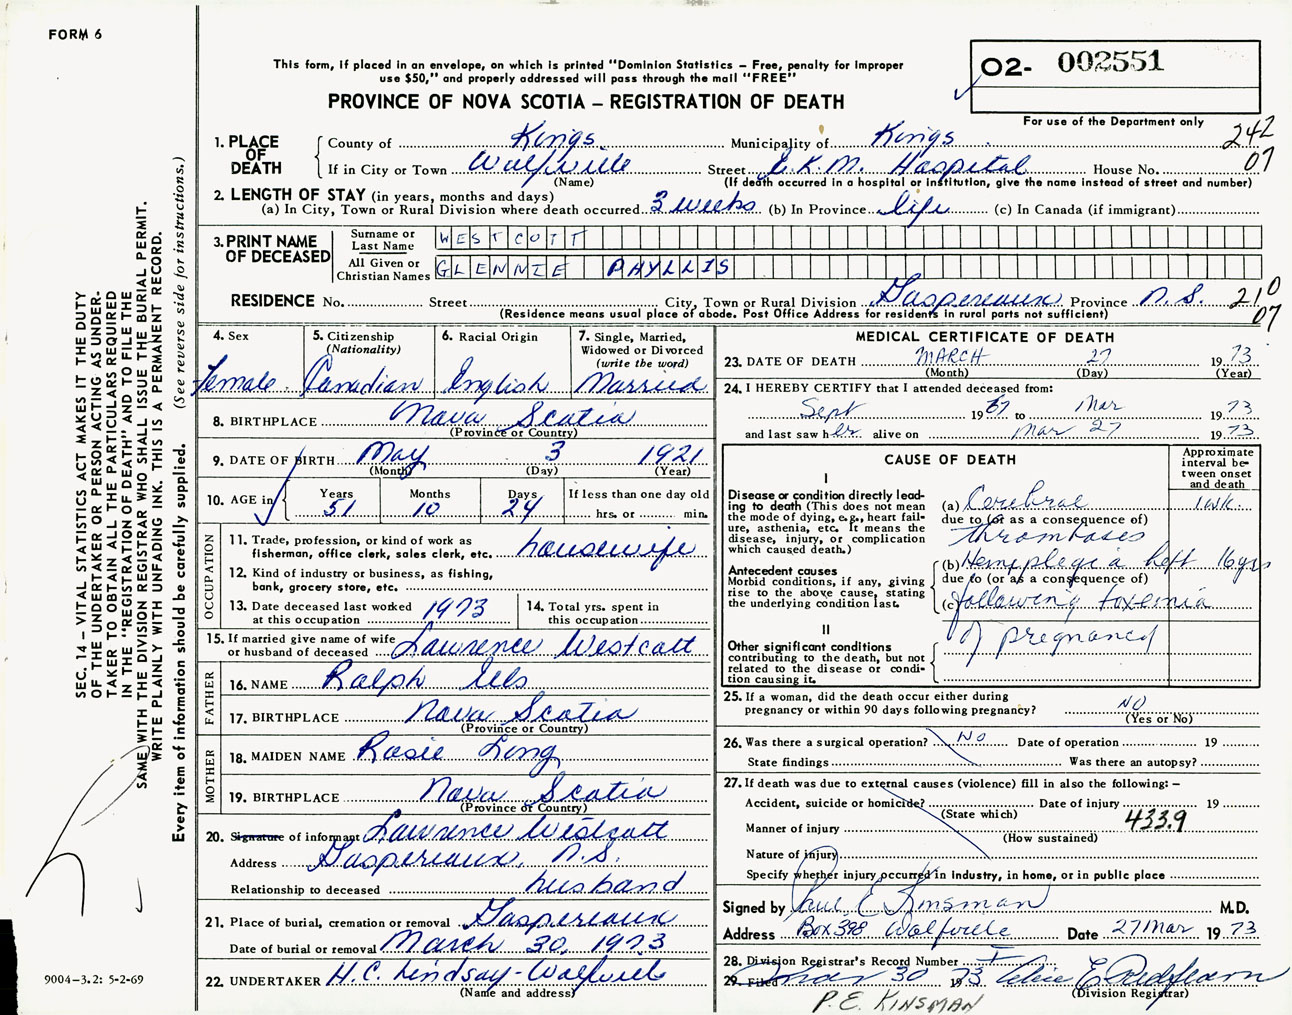 FORM 6
This form, if placed in an envelope, on which is printed "Dominion Statistics – Free, penalty for improper
use $50," and properly addressed will pass through the mail "FREE"
PROVINCE OF NOVA SCOTIA – REGISTRATION OF DEATH
O2- 002551
For use of the Department only
1. PLACE OF DEATH
County of Kings Municipality of Kings 242
If in City or Town Wolfville Street E.K.M. Hospital House No. 07
(Name) (If death occurred in a hospital or institution, give the name instead of street and number)
2. LENGTH OF STAY (in years, months and days)
(a) In City, Town or Rural Division where death occurred 3 weeks (b) In Province life (c) In Canada (if immigrant)
3. PRINT NAME OF DECEASED
Surname or Last Name WESTCOTT
All Given or Christian Names GLENNIE PHYLLIS
RESIDENCE No. Street City, Town or Rural Division Gaspereaux Province N.S. 210
(Residence means usual place of abode. Post Office Address for residents in rural parts not sufficient) 07
4. Sex Female
5. Citizenship (Nationality) Canadian
6. Racial Origin English
7. Single, Married, Widowed or Divorced (write the word) Married
8. BIRTHPLACE Nova Scotia
(Province or Country)
9. DATE OF BIRTH May 3 1921
(Month) (Day) (Year)
10. AGE in Years 51 Months 10 Days 24 If less than one day old
hrs. or min.
OCCUPATION
11. Trade, profession, or kind of work as
fisherman, office clerk, sales clerk, etc. housewife
12. Kind of industry or business, as fishing,
bank, grocery store, etc.
13. Date deceased last worked at this occupation 1973
14. Total yrs. spent in this occupation
15. If married give name of wife or husband of deceased Lawrence Westcott
FATHER
16. NAME Ralph Eels
17. BIRTHPLACE Nova Scotia
(Province or Country)
MOTHER
18. MAIDEN NAME Rosie Long
19. BIRTHPLACE Nova Scotia
(Province or Country)
20. Signature of informant Lawrence Westcott
Address Gaspereaux, N.S.
Relationship to deceased husband
21. Place of burial, cremation or removal Gaspereaux
Date of burial or removal March 30, 1973
22. UNDERTAKER H.C. Lindsay - Wolfville
(Name and address)
MEDICAL CERTIFICATE OF DEATH
23. DATE OF DEATH MARCH 27 1973
(Month) (Day) (Year)
24. I HEREBY CERTIFY that I attended deceased from:
Sept 1967 to Mar 1973
and last saw her alive on Mar 27 1973
CAUSE OF DEATH
Approximate interval between onset and death
I
Disease or condition directly leading to death (This does not mean the mode of dying, e.g., heart failure, asthenia, etc. It means the disease, injury, or complication which caused death.)
(a) Cerebral 1 wk.
due to (or as a consequence of)
thromboses
Antecedent causes
Morbid conditions, if any, giving rise to the above cause, stating the underlying condition last.
(b) Hemiplegia left 16 yrs
due to (or as a consequence of)
(c) following toxemia
of pregnancy
II
Other significant conditions
contributing to the death, but not related to the disease or condition causing it.
25. If a woman, did the death occur either during
pregnancy or within 90 days following pregnancy? NO
(Yes or No)
26. Was there a surgical operation? No Date of operation 19
State findings Was there an autopsy?
27. If death was due to external causes (violence) fill in also the following: –
Accident, suicide or homicide? Date of injury 19
(State which)
Manner of injury 433.9
(How sustained)
Nature of injury
Specify whether injury occurred in industry, in home, or in public place
Signed by Paul E Kinsman M.D.
Address Box 398 Wolfville Date 27 Mar 1973
28. Division Registrar's Record Number
29. Filed Mar 30 1973 E. Redfearn
(Division Registrar)
P.E. KINSMAN
SEC. 14 – VITAL STATISTICS ACT MAKES IT THE DUTY
OF THE UNDERTAKER OR PERSON ACTING AS UNDER-
TAKER TO OBTAIN ALL THE PARTICULARS REQUIRED
IN THE "REGISTRATION OF DEATH" AND TO FILE THE
SAME WITH THE DIVISION REGISTRAR WHO SHALL ISSUE THE BURIAL PERMIT.
WRITE PLAINLY WITH UNFADING INK. THIS IS A PERMANENT RECORD.
Every item of information should be carefully supplied. (See reverse side for instructions.)
9004–3.2: 5-2-69